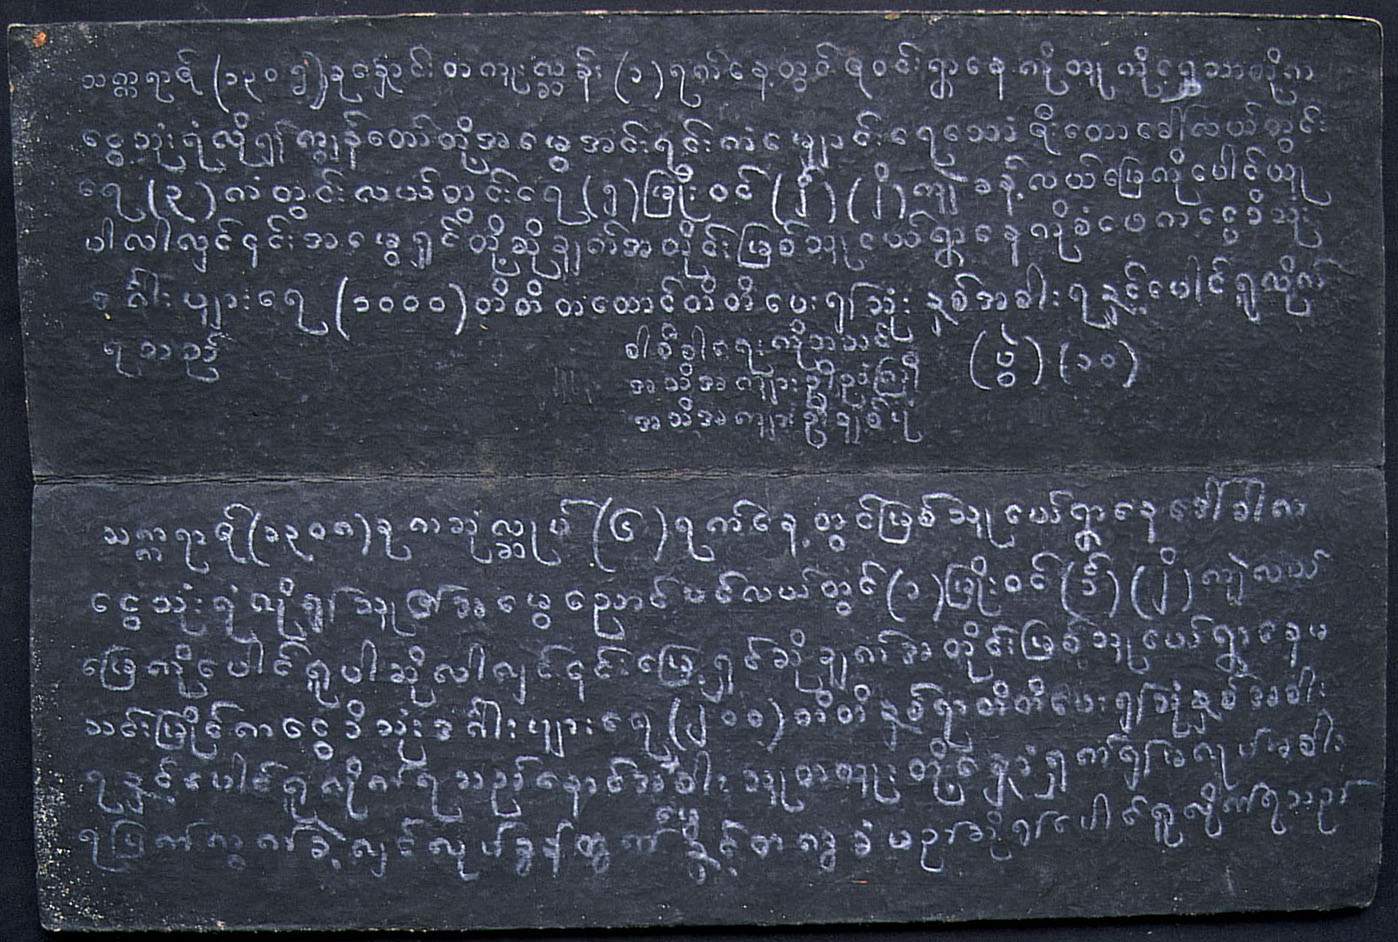 သက္ကရာဇ် (၁၃၀၅) ခုနှောင်းတကူးလ္ဆန်း (၁) ရက်နေ့တွင် ရွာနေ ကို
ငွေသုံးရံလို၍ ကျွန်တော်တို့အမွေအင်းရင်းကံ ရေသောံ လယ်တွင်း
ရေ (၃) ကံတွင်းလယ်တင်းရေ (၅) မြို့ဝင် (၂) (၂) ကျဲခန့် လယ်မြေကိုပေါင်ယူ
ပါလါလျှင်၎င်းအမွေရှင်တို့ဆိုချက်အတိုင်းဖြစ်သူငယ်ရွာနေ ကငွေဒိသုံး
ဒင်္ဂါးပျားရေ (၁၀၀၀) တိတိ တထောင်တိတိပေး၍သုံးနှစ်အခါးရနှင့်ပေါင်ရူလိုက်
ရသည်
ခါစီခါရေးကိုဘသင် (ပွဲ) (၁၀)
အသိအကျားဦးဥကြီ
အသိအကျားဦးချစ်ပု
သက္ကရာဇ် (၁၃၀၈) ခု ကဆုံလ္ဆုပ် (၆) ရက်နေ့တွင်ဖြစ်သူငယ်ရွာနေ ဒေါ်ခါလ
ငွေသုံးရံလို၍ သူ၏အမွေညောင်ပင်လယ်တွင် (၁) မြို့ဝင် (၁) (၂) ကျဲလယ်
မြေကိုပေါင်ရူပါဆိုလါလျင်၎င်းမြေ့ရှင်ဆိုချက်အတိုင်းဖြစ်သူငယ်ရွာနေမ
သင်းမြိုင်ကငွေဒိသုံးဒင်္ဂါးပျားရေ (၂၀၀) တိတိ နှစ်ရာတိတိပေး၍သုံနှစ်အခါး
ရနှင့်ပေါင်ရူလိုက်ရသည်နောင်အခါး သူတထူးတို့ နှောံရှက်၍ အလုပ်အခါး
ရဖြက်ကွက်ခဲ့လျင်လုပ်ခွန်ထွက် နှင့်တကွခံမည်ဆို၍ပေါင်ရူလိုက်ရသည်